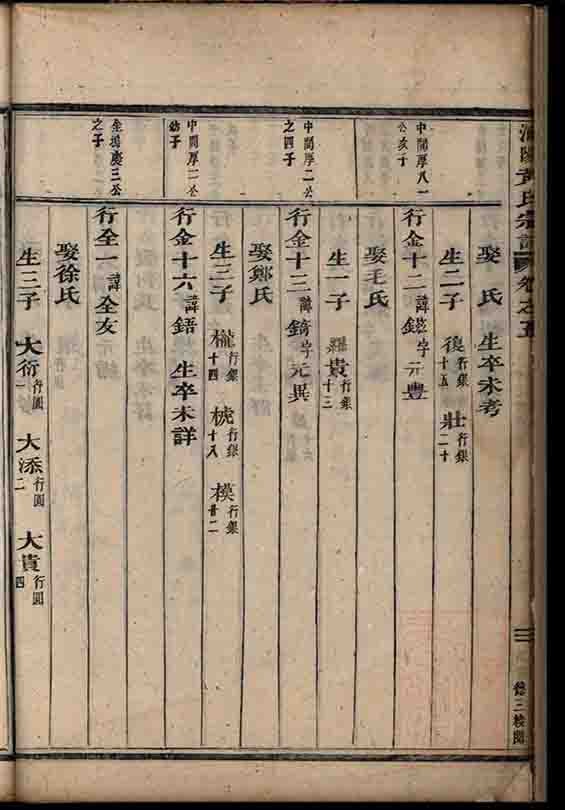 黃氏宗譜 卷之五
娶 氏 生卒未考
生二子 復行銀十五 壯行銀二十
中間厚八一公次子
行金十二諱鎰字元豐
娶毛氏
生一子 貴行銀十三
中間厚二公之四子
行金十三諱錡字元異
娶鄭氏
生三子 櫳行銀十四 梡行銀十八 模行銀廿二
中間厚二公幼子
行金十六諱鋙 生卒未詳
慶三公之子
行全一諱全友
娶徐氏
生三子 大衍行圓一 大添行圓二 大貴行圓四
三